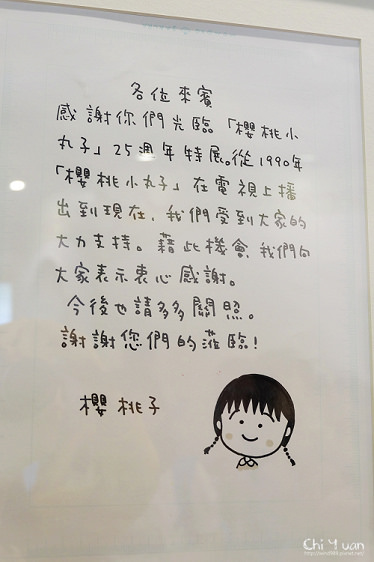 各位來賓
感謝你們光臨「櫻桃小
丸子」25週年特展。從1990年
「櫻桃小丸子」在電視上播
出到現在，我們受到大家的
大力支持。藉此機會，我們向
大家表示衷心感謝。
今後也請多多關照。
謝謝您們的蒞臨！
櫻桃子
Chi Yuan